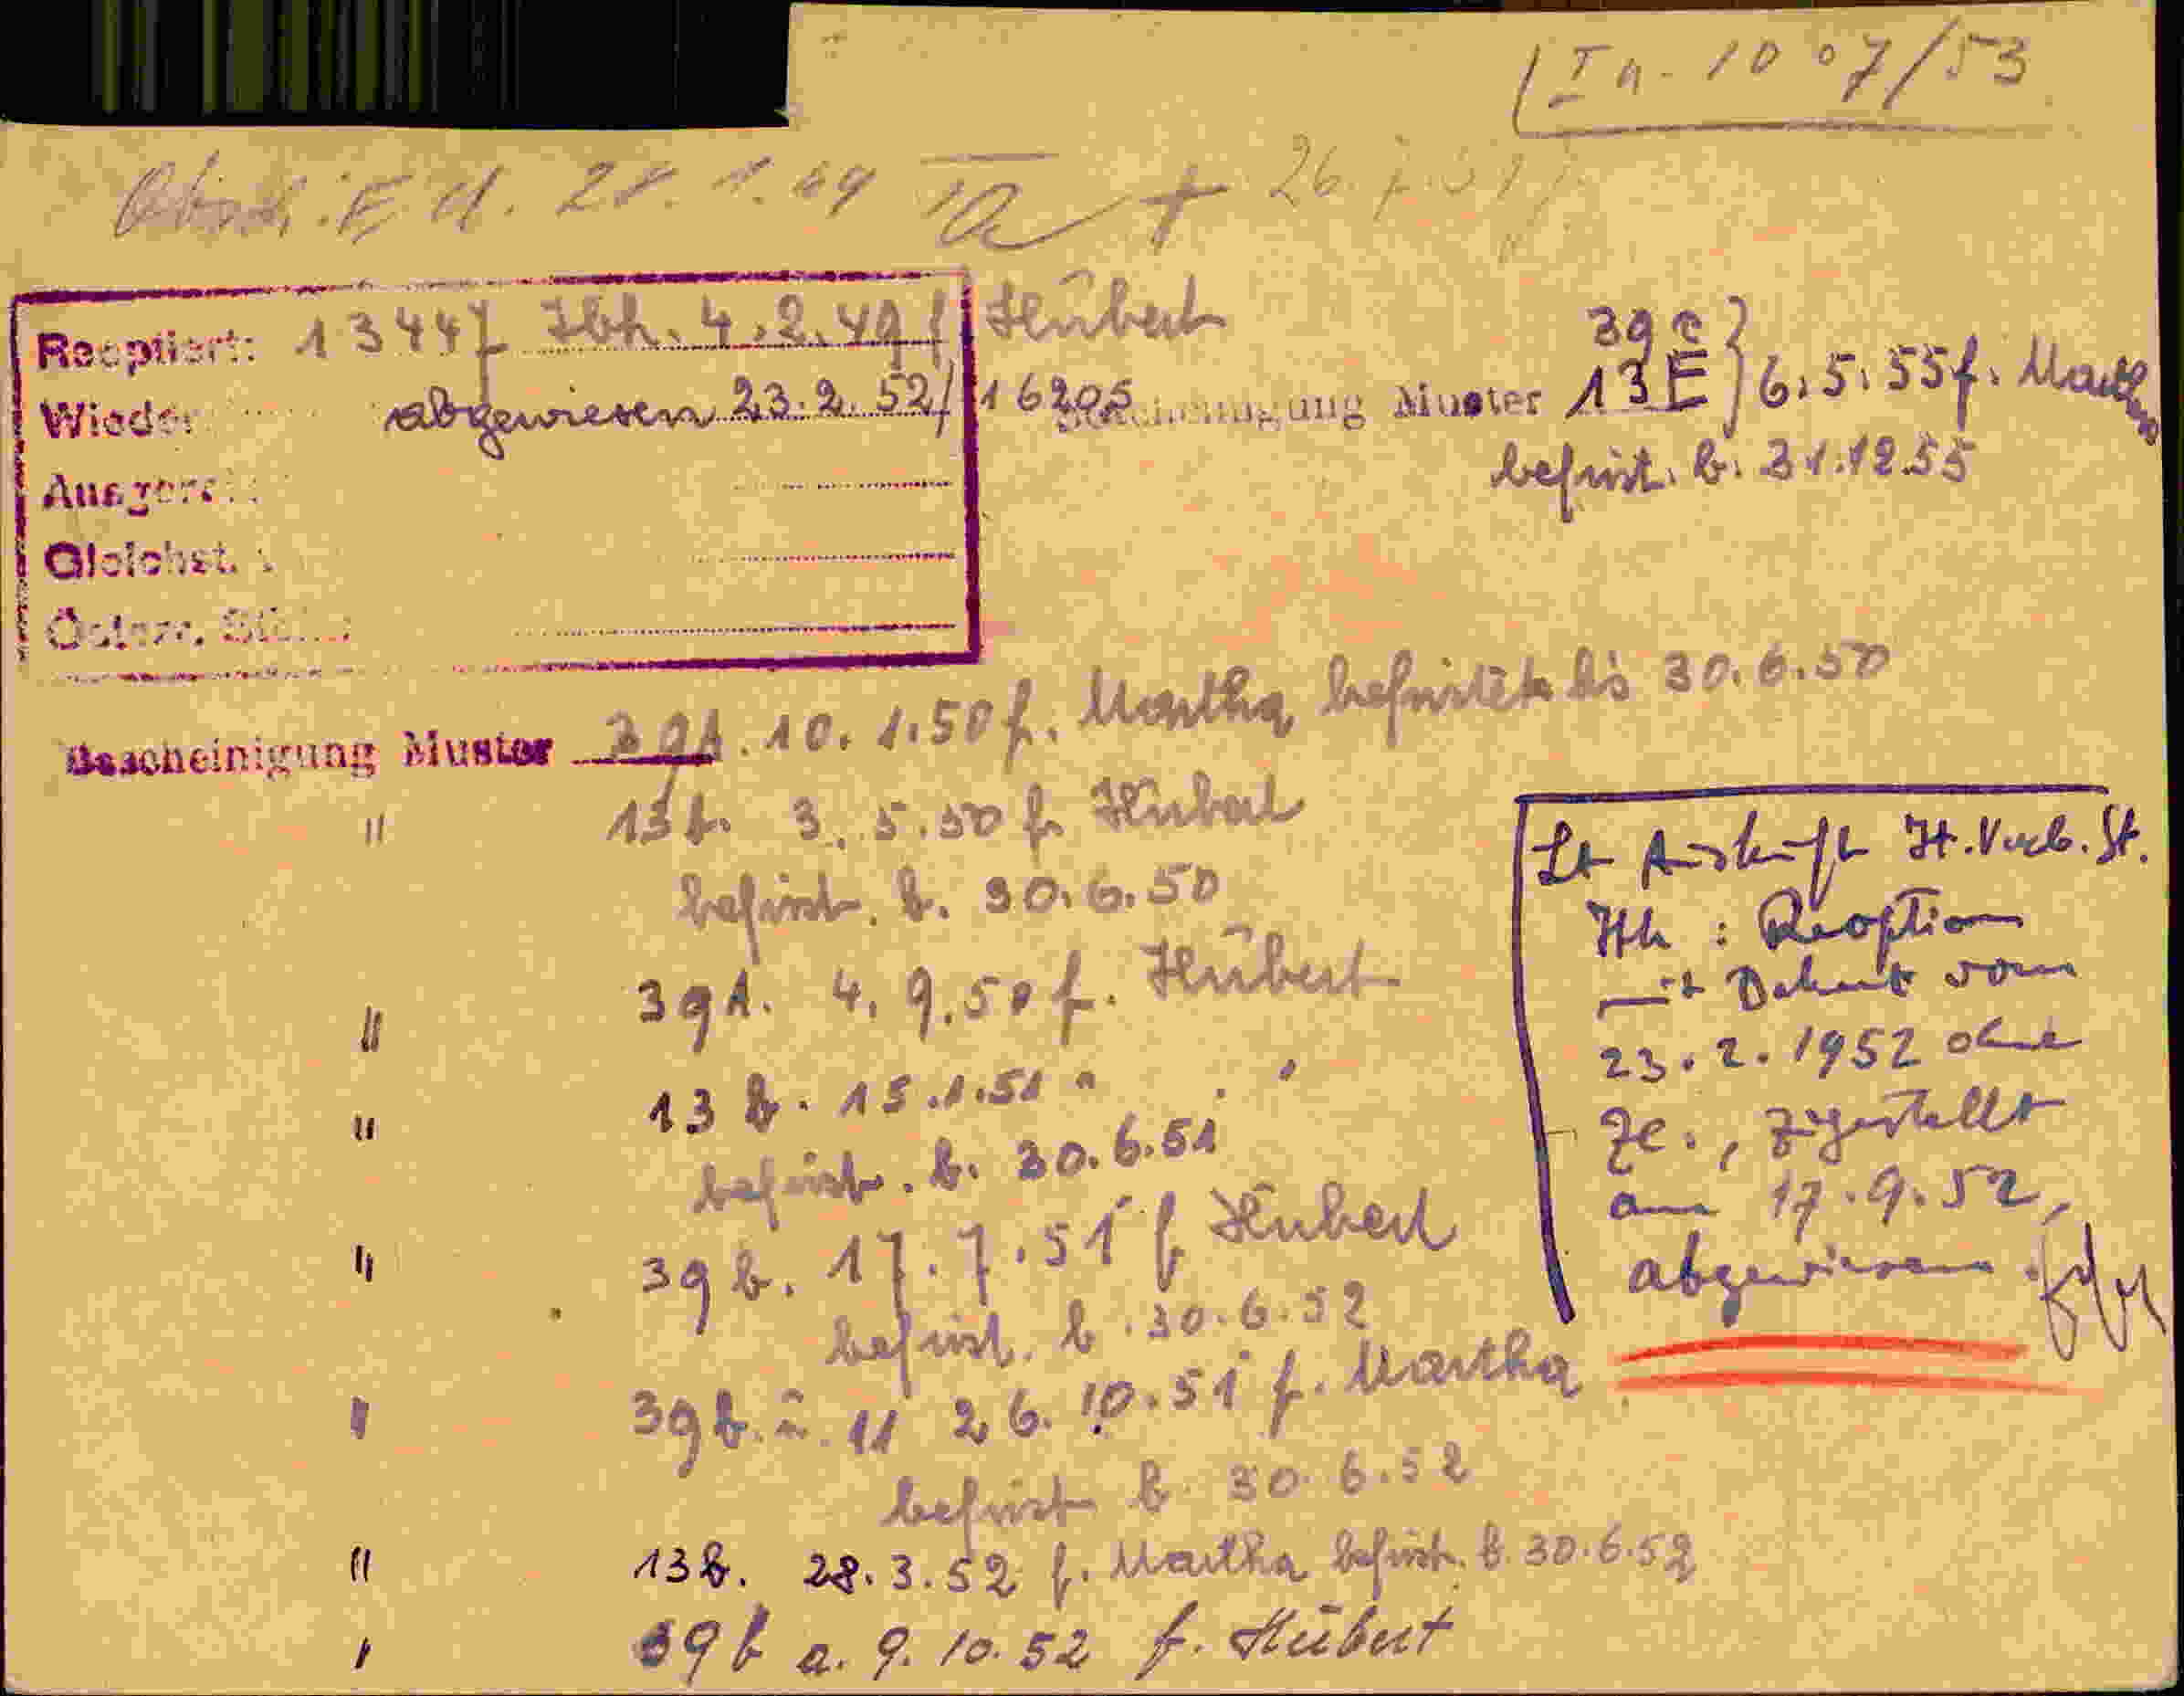 Ia. 1007/53
28.1.69
26.7.
Reoptiert: 13447 Ibk. 4.2.49 f Hubert
Wieder abgewiesen 23.2.52/16205
Gleichst.
Bescheinigung Muster 39c 13E } 6.5.55 f. Martha
befrist. b. 31.12.55
Bescheinigung Muster 39A. 10.1.50 f. Martha befristet bis 30.6.50
" 13b. 3.5.50 f. Hubert
befrist. b. 30.6.50
" 39A. 4.9.50 f. Hubert
" 13b. 15.1.51 " "
befrist. b. 30.6.51
" 39b. 17.7.51 f Hubert
befrist. b. 30.6.52
" 39b. u. 11 26.10.51 f. Martha
befrist b. 30.6.52
" 13b. 28.3.52 f. Martha befrist. b. 30.6.52
" 39b a. 9.10.52 f. Hubert
Lt Auskunft It. Verb. St.
Ibk : Reoption
mit Dekret vom
23.2.1952 ohne
Zl., zugestellt
am 17.9.52,
abgewiesen.